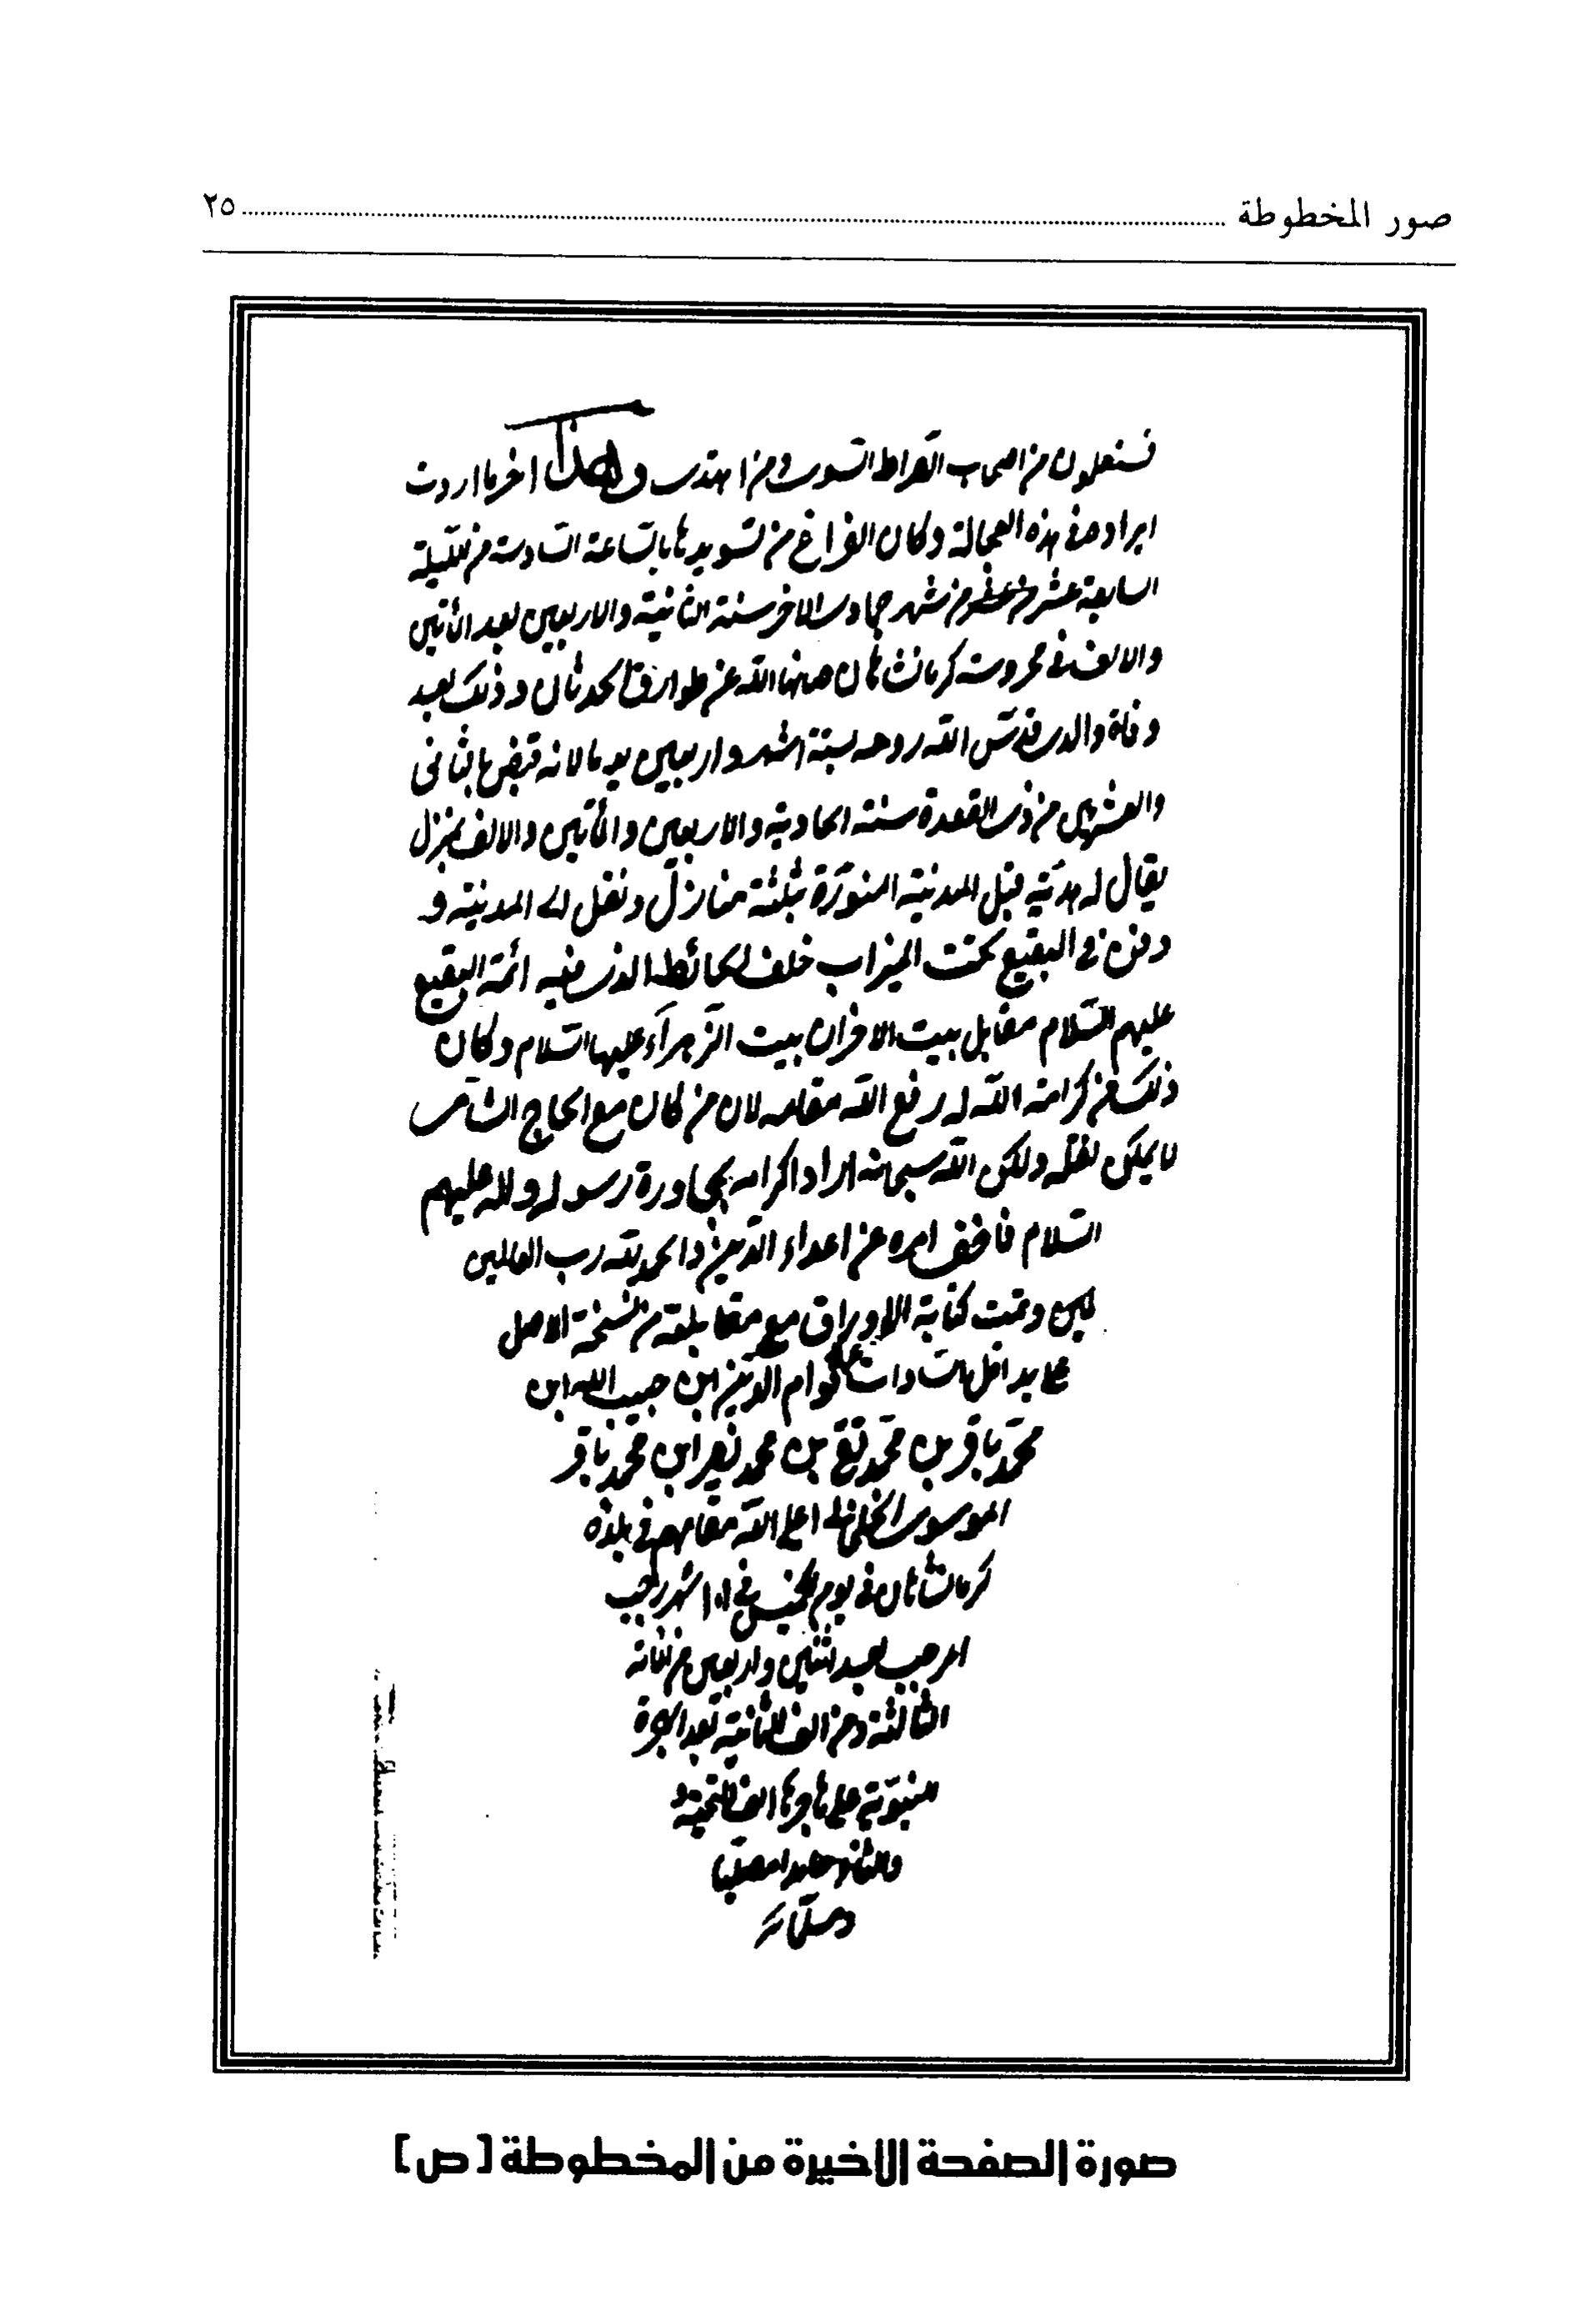 صور المخطوطة ........ ٢٥
فستعلمون من اصحاب الصراط السوى ومن اهتدى وهذا اخر ما اردت
ايراده فى هذه العجالة وكان الفراغ من تسويدها بالساعة السادسة من الليلة
السابعة عشر من شهر جمادى الاخر سنة الثانية والاربعين بعد المأتين
والالف فى محروسة كرمانشاهان صانها الله عن طوارق الحدثان وذلك بعد
وفاة والدى قدس الله روحه بستة اشهر واربعين يوما لانه قبض بالثانى
والعشرين من ذى القعدة سنة الحادية والاربعين والمأتين والالف بمنزل
يقال له هدية قبل المدينة المنورة بثلثة منازل ونقل الى المدينة و
دفن فى البقيع تحت الميزاب خلف الحائط الذى فيه ائمة البقيع
عليهم السلام مقابل بيت الاحزان بيت الزهرآء عليها السلام وكان
ذلك من كرامة الله له رفع الله مقامه لان من كان مع الحاج الشامى
لا يمكن نقله ولكن الله سبحانه اراد اكرامه بمجاورة رسوله واله عليهم
السلام فاخفى امره عن اعداء الدين والحمد لله رب العالمين
وتمت كتابة الاوراق مع مقابلته من نسخة الاصل
بيد اقل السادات قوام الدين ابن حبيب الله ابن
محمد باقر بن محمد تقى بن محمد نصير ابن محمد باقر
الموسوى الخلخالى اعلى الله مقامهم فى بلدة
كرمانشاهان فى يوم الخميس فى شهر رجب
المرجب بعد اثنين واربعين من المائة
الثالثة ومن الف الثانية بعد الهجرة
النبوية على هاجرها الف التحية
والثناء حامدا مصليا
صورة الصفحة الأخيرة من المخطوطة [ص]